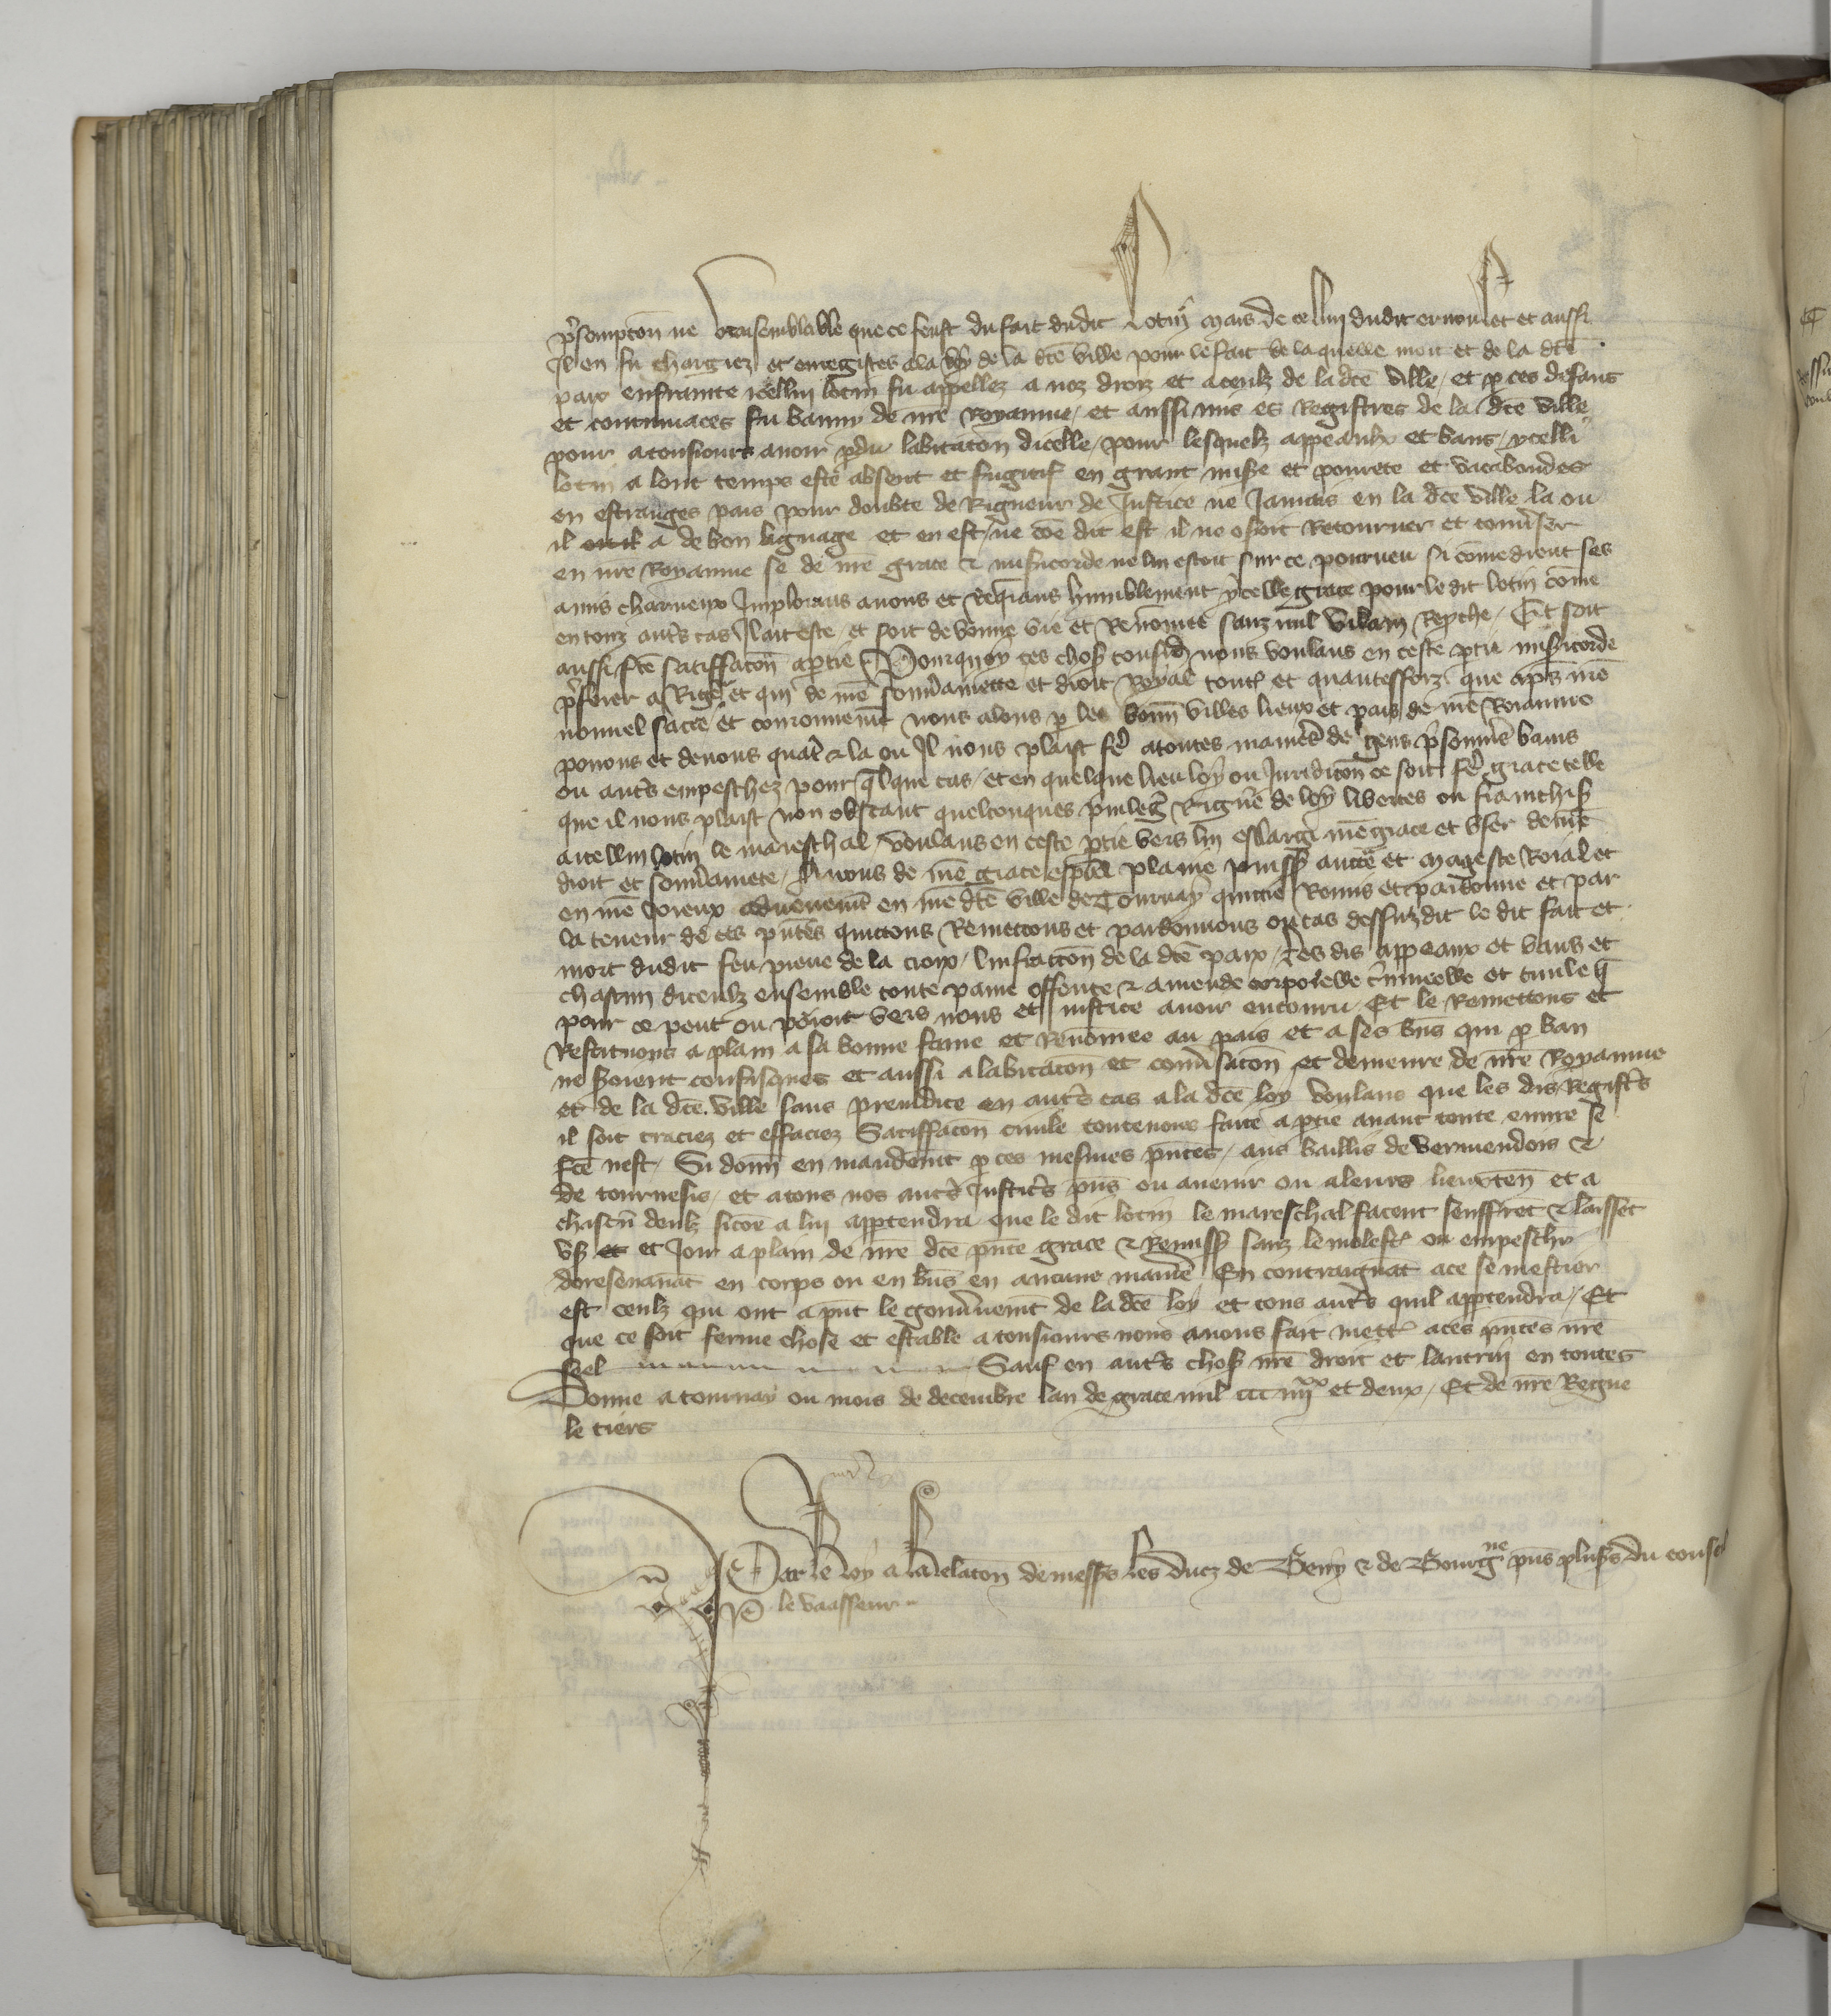 p̄sompton̄ ne vraisemblable que ce feust du fait dudit Lotin mais de cellui dudit ernoulet et aussi
Il en fu chargiez et enregistres a la loy de la dc̄e ville pour le fait de laquelle mort et de la dc̄e
paix enfrainte icellui lotin fu appellez a noz droiz et a ceulz de la dc̄e ville / et p ces defaus
et contumaces fu banny de nr̄e Royaume / et aussi mis es Registres de la dc̄e ville
pour a tousiours avoir pdu labitacōn dicelle / pour lesquelz appeaulx et bans / ycelli
lotin a lont temps esté absent et fugitif en grant mis̄e et povrete et vacabondes
en estranges pais pour doubte de Rigueur de Justice ne Jamais en la dc̄e ville la ou
il a de bon lignage et en est ne cōe dit est il ne osoit Retourner et conv̄ser
en nr̄e Royaume se de nr̄e grace & mis̄icorde ne lui estoit sur ce pourveu si cōme dient ses
amis charneux Implorans avons et Reqrans humblement ycelle grace pour le dit lotin cōme
en touz autrs cas Il ait este / et soit de bonne vie et Renōmee sanz nul villain Repche / Et soit
aussi fc̄e satiffacōn a ptie Pourquoy ces chos̄ consid̄ nous voulans en ceste ptie mis̄icorde
p̄ferer a Rigr̄ et qui de nr̄e souv̄ainette et droit Royal toutes et quanteffoiz que aps nr̄e
nouvel sacre et couronnemt nous alons p les bonn̄ villes lieux et pais de nr̄e Roiaume
povons et devons quāt & la ou Il nous plaist fe᷑ a toutes manies de gens p̄sonnrs banis
ou autrs empeschez pour qlque cas / et en quelque lieu loy ou Juridicōn ce soit fe᷑ grace telle
que il nous plaist non obstant quelconques p̄vileḡ Rigur̄ de loy libertes ou franchis̄
a icellui lotin le mareschal / voulans en ceste ptie vers lui eslargir nr̄e grace et user de nr̄e
droit et souv̄ainete / Avons de nr̄e grace esp̄al plaine puiss̄ auctē et mageste Roial et
en nr̄e Joieux advenemt en nr̄e dc̄e ville de Tournay quictie Remis et pardonne et par
la teneur de ces pn̄tes quictons Remettons et pardonnons ou cas dessusdit le dit fait et
mort dudit feu pierre de la croix / linfraccōn de la dc̄e paix / les dis appeaux et bans et
chascun diceulz ensemble toute paine offence & amende corporelle c̄minelle et civile q̄
pour ce peut ou poroit vers nous et justice avoir encouru Et le Remettons et
Restituons a plain a sa bonne fame et Renōmee au pais et a ses bn̄s qui p ban
ne s̄oient confisques et aussi a labitacōn et conv̄sacōn et demeure de nr̄e Royaume
et de la dc̄e ville sans preiudice en autrs cas a la dc̄e loy voulans que les dis Registrs
il soit traciez et effaciez Satiffacōn civile toutevoie faite a ptie avant toute euvre se
fc̄e nest / Si donn̄ en mandemt p ces mesmes pn̄tes / aus baillis de vermendois &
de tournesis / et a tous nos autrs Justicrs pn̄s ou avenir ou a leurs lieuxten̄ et a
chascū deulz sicōe a lui apptendra que le dit lotin le mareschal facent seuffret & laissēt
us̄ et Joir a plain de nr̄e dc̄e pn̄te grace & Remiss̄ sanz le molester ou empeschr
doresenavāt en corps ou en bn̄s en aucune manie᷑ En contraignāt a ce se mestier
est ceulz qui ont a pn̄t le gouv̄nemt de la dc̄e loy et tous autrs quil apptendra / Et
que ce soit ferme chose et estable a tousiours nous avons fait mettr̄ a ces pn̄tes nr̄e
seel Sauf en autrs chos̄ nr̄e droit et lautruy en toutes
Donne a tournay ou mois de decembre lan de grace mil ccc iiij^xx et deux / Et de nr̄e Regne
le tiers
Par le Roy a la Relacōn de messrs les ducz de Berry & de Bourg^ne pn̄s plus̄s du conse
le vasseur